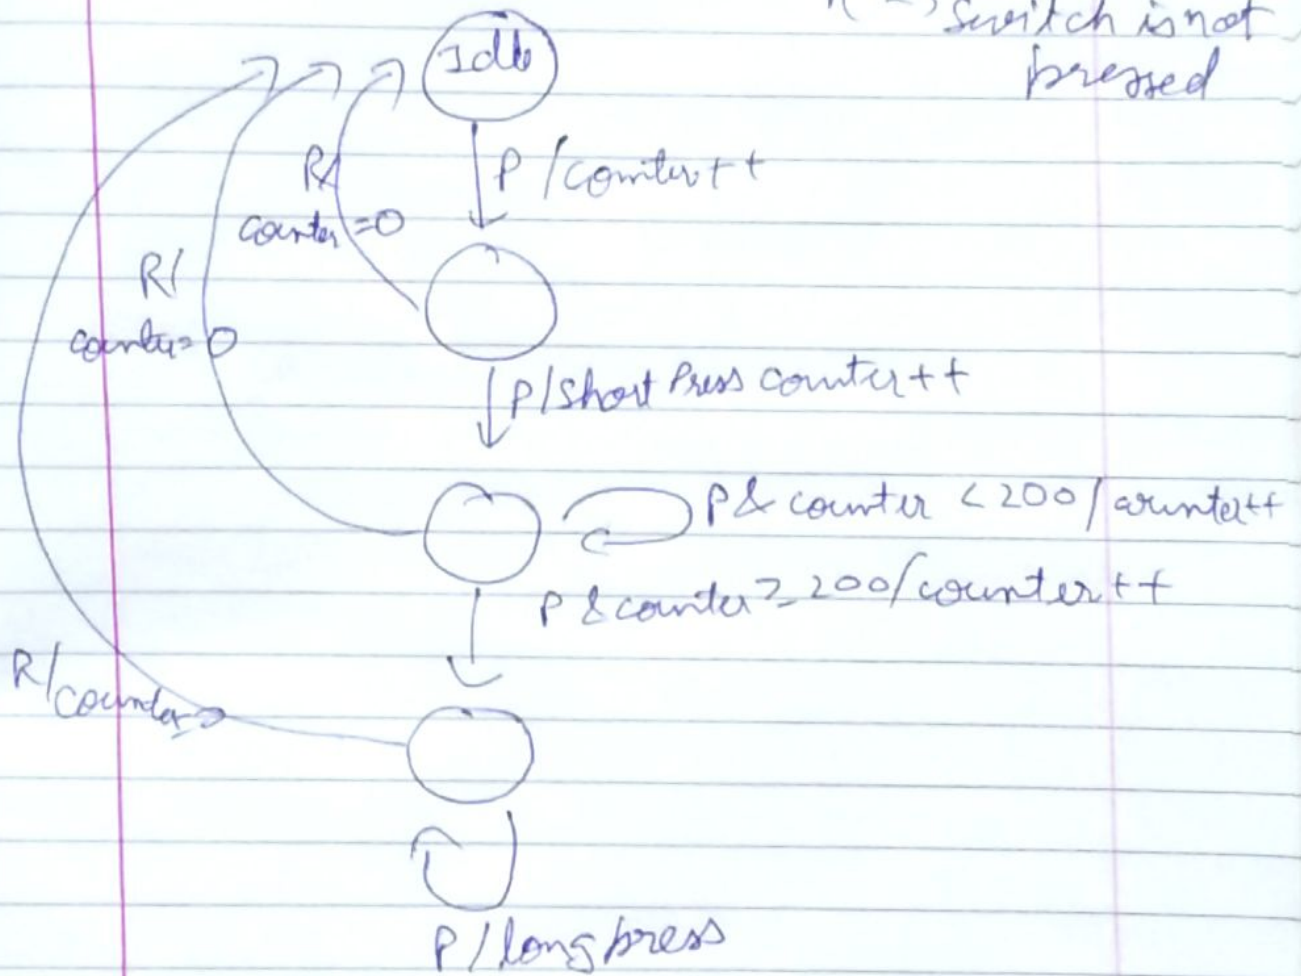 Switch is not
pressed
Idle
P / counter++
R/
counter=0
R/
counter=0
P/Short Press counter++
P& counter <200/counter++
P & counter>=200/counter++
R/
counter=
P/long press